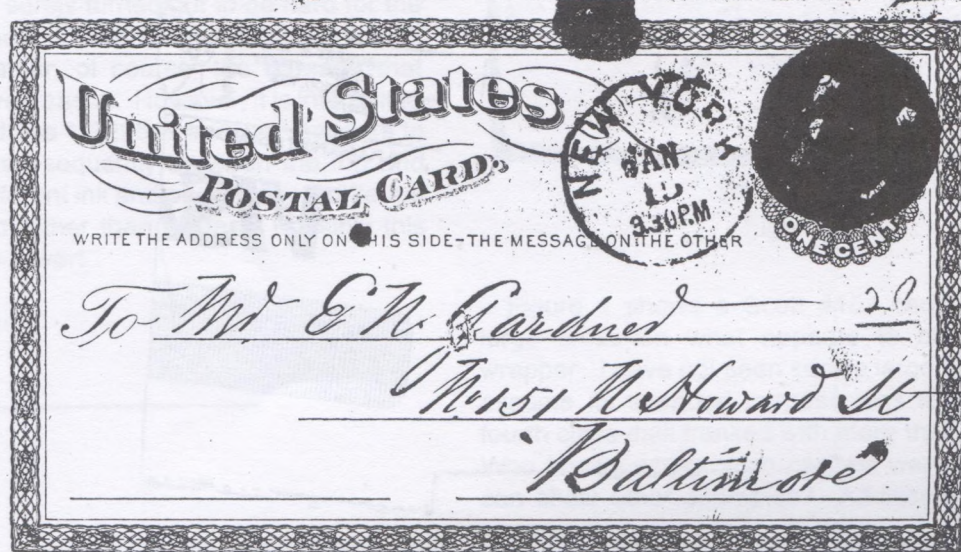 United States
POSTAL CARD.
NEW YORK
JAN
3.30 P.M
ONE CENT
WRITE THE ADDRESS ONLY ON THIS SIDE-THE MESSAGE ON THE OTHER
To Mr E. N. Gardner
No 151 N Howard St
Baltimore